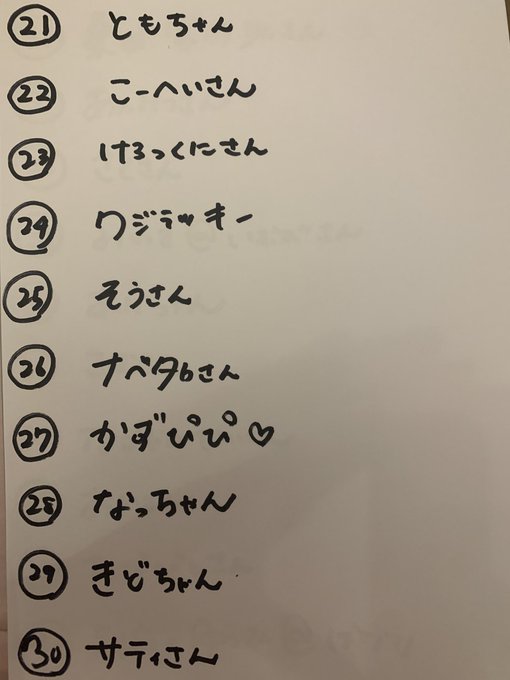 ㉑ ともちゃん
㉒ こーへいさん
㉓ けろっくにさん
㉔ ワジラッキー
㉕ そうさん
㉖ ナベタ6さん
㉗ かずぴぴ♡
㉘ なっちゃん
㉙ きどちゃん
㉚ サティさん